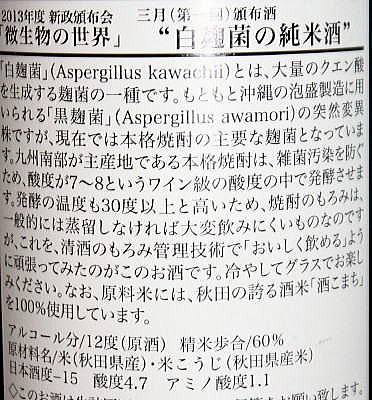 2013年度 新政頒布会　三月(第一回)頒布酒
「微生物の世界」　“白麹菌の純米酒”
「白麹菌」(Aspergillus kawachii)とは、大量のクエン酸
を生成する麹菌の一種です。もともと沖縄の泡盛製造に用
いられる「黒麹菌」(Aspergillus awamori)の突然変異
株ですが、現在では本格焼酎の主要な麹菌となっていま
す。九州南部が主産地である本格焼酎は、雑菌汚染を防ぐ
ため、酸度が7〜8というワイン級の酸度の中で発酵させま
す。発酵の温度も30度以上と高いため、焼酎のもろみは、
一般的には蒸留しなければ大変飲みにくいものなのです
が、これを、清酒のもろみ管理技術で「おいしく飲める」よう
に頑張ってみたのがこのお酒です。冷やしてグラスでお楽し
みください。なお、原料米には、秋田の誇る酒米「酒こまち」
を100%使用しています。
アルコール分/12度(原酒)　精米歩合/60%
原材料名/米(秋田県産)・米こうじ(秋田県産米)
日本酒度-15　酸度4.7　アミノ酸度1.1
◇このお酒は生